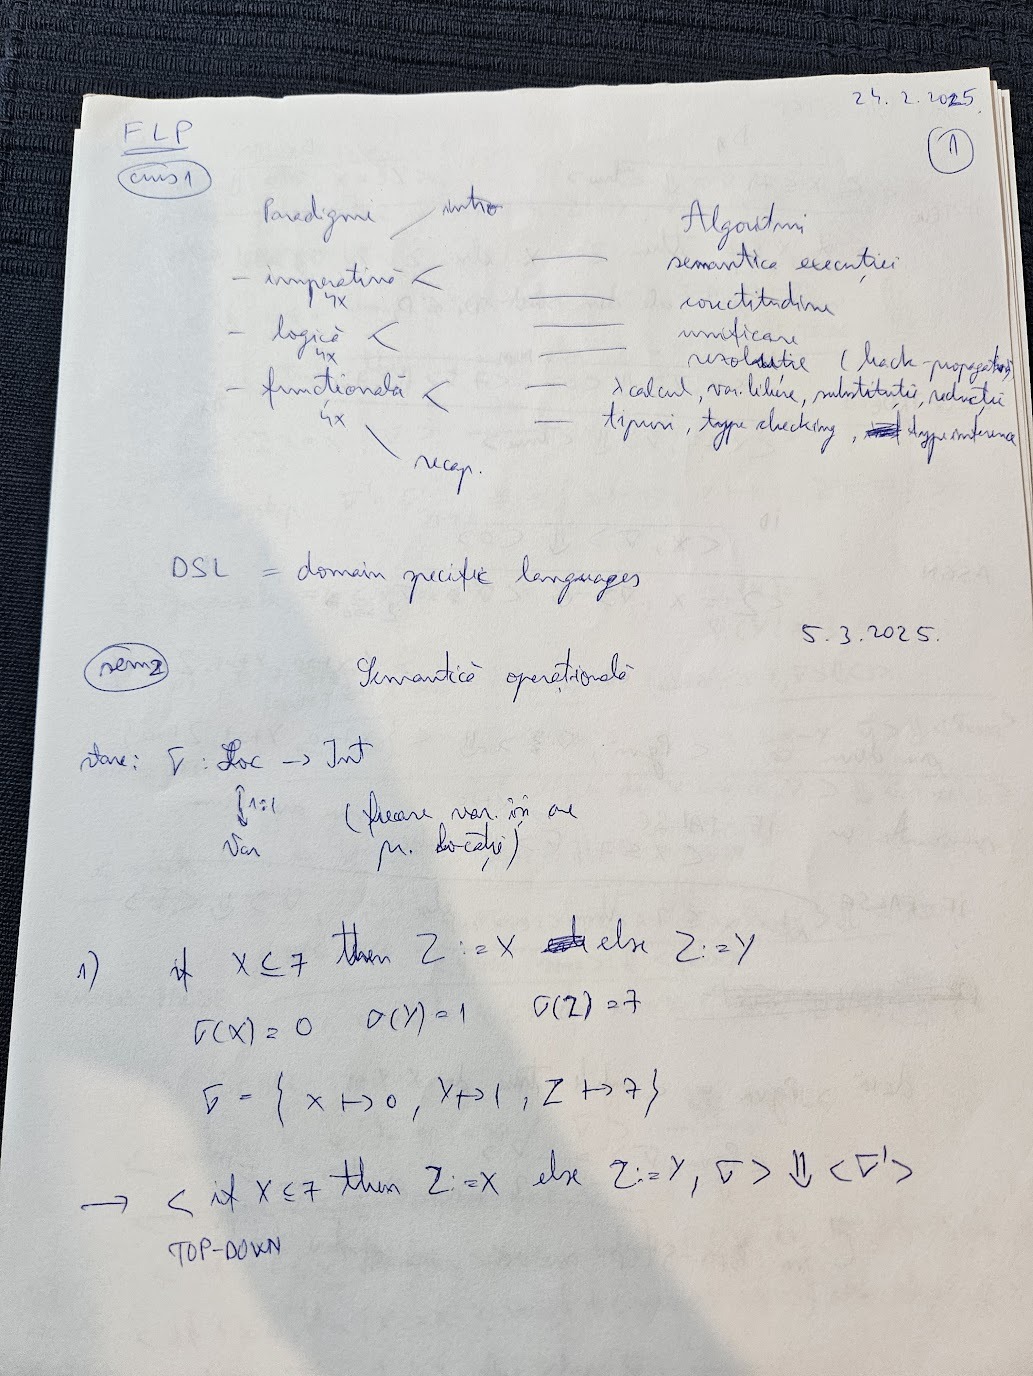 24.2.2025.
FLP
1
curs 1
Paradigmi / intro Algoritmi
- imperativă < — semantica execuției
4x — corectitudine
- logică < — unificare
4x — rezoluție (back-propagation)
- funcțională < — λ calcul, var. libere, substituții, reducții
4x — tipuri, type checking, type inference
recap.
DSL = domain specific languages
5.3.2025.
sem 2
Semantică operațională
stare: σ : Loc → Int
↕ 1:1 (fiecare var. își are
Var pr. locație)
1) if X ≤ 7 then Z := X else Z := Y
σ(X) = 0 σ(Y) = 1 σ(Z) = 7
σ = { X ↦ 0, Y ↦ 1, Z ↦ 7 }
→ < if X ≤ 7 then Z := X else Z := Y, σ > ⇓ < σ' >
TOP-DOWN